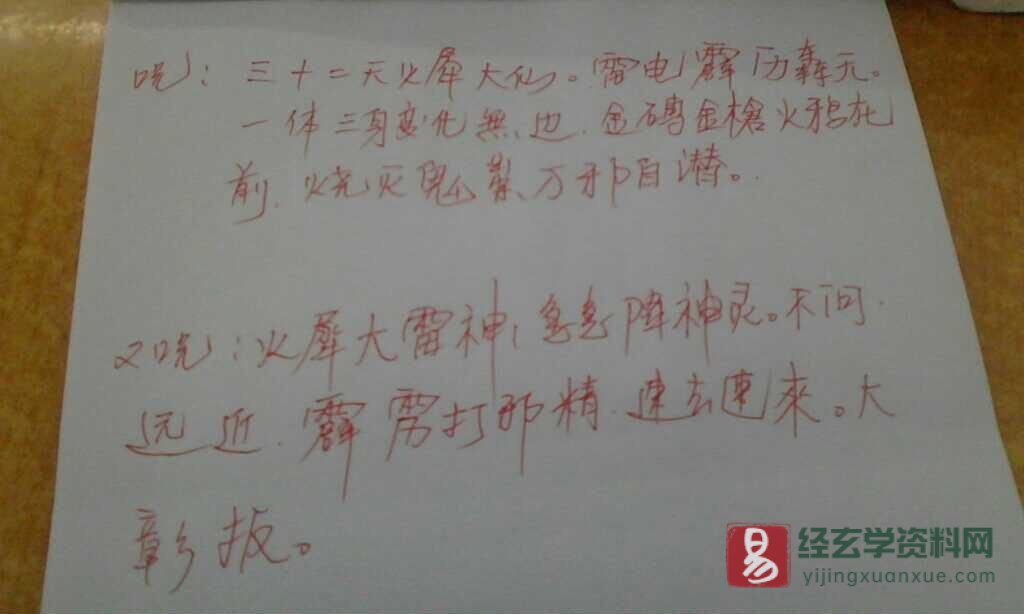 咒：三十二天火犀大仙。雷电霹历轰元。
一体三身变化無边.金磚金槍火鸦在
前.烧灭鬼群.万邪自潜。
又咒：火犀大雷神,急急降神灵。不问
远近.霹雳打邪精.速去速來。大
彰报。
易 经玄学资料网
yijingxuanxue.com